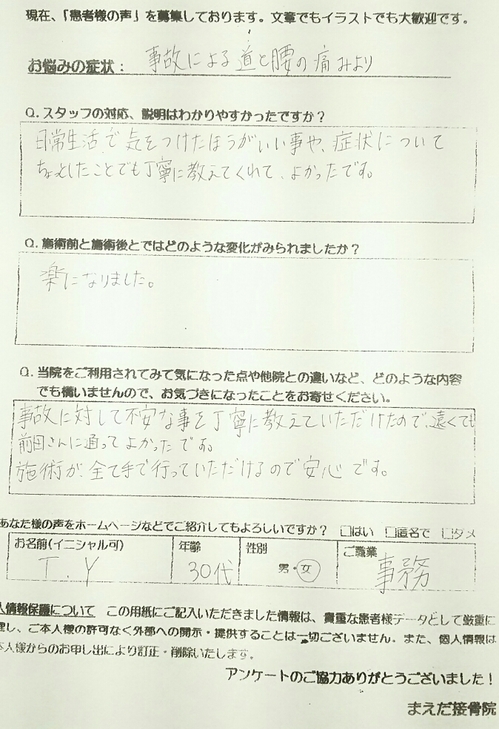 現在、「患者様の声」を募集しております。文章でもイラストでも大歓迎です。
お悩みの症状： 事故による首と腰の痛みより
Q. スタッフの対応、説明はわかりやすかったですか？
日常生活で気をつけたほうがいい事や、症状について
ちょっとしたことでも丁寧に教えてくれて、よかったです。
Q. 施術前と施術後とではどのような変化がみられましたか？
楽になりました。
Q. 当院をご利用されてみて気になった点や他院との違いなど、どのような内容
でも構いませんので、お気づきになったことをお寄せください。
事故に対して不安な事を丁寧に教えていただけたので、遠くても
前田さんに通ってよかったです。
施術が全て手で行っていただけるので安心です。
あなた様の声をホームページなどでご紹介してもよろしいですか？ □はい □匿名で □ダメ
お名前(イニシャル可) 年齢 性別 ご職業
T.Y 30代 男・女 事務
人情報保護について この用紙にご記入いただきました情報は、貴重な患者様データとして厳重に
理し、ご本人様の許可なく外部への開示・提供することは一切ございません。また、個人情報は
本人様からのお申し出により訂正・削除いたします。
アンケートのご協力ありがとうございました！
まえだ接骨院